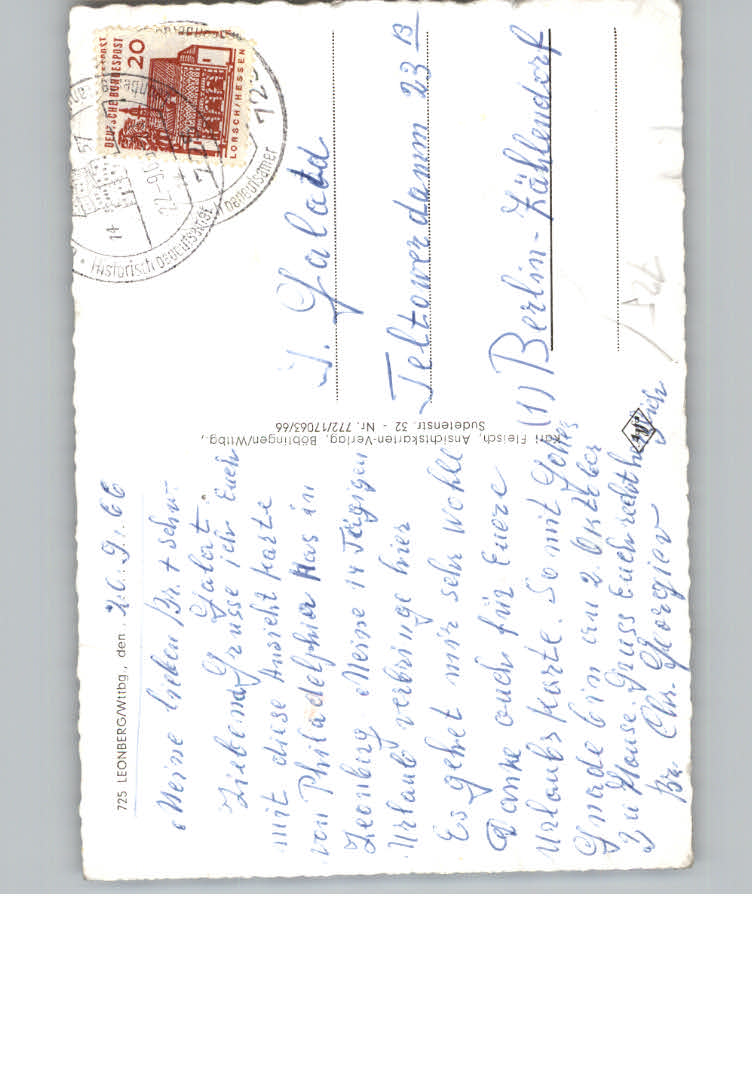 725 LEONBERG/Wttbg., den 20.9.66
Meine lieben Br. + Schw.
Galat.
Liebend Grüsse ich Euch
mit diese Ansicht karte
von Philadelphia Has in
Leonberg Meine 14 Tägigen
Urlaub verbringe hier
Es gehet mir sehr Wohle
Danke auch für Euere
Urlaubs karte. So mit Gottes
Gnade bin am 2. Oktober
Zu Hause. Gruss Euch recht herzlich
Br. Chr. Georgiev
Karl Fleisch, Ansichtskarten-Verlag, Böblingen/Wttbg.,
Sudetenstr. 32 - Nr. 772/17063/66
DEUTSCHE BUNDESPOST
20
LORSCH/HESSEN
Historisch bedeutsamer
bedeutsamer
725
14
J. Galatd
Teltower damm 23 B
(1) Berlin-Zählendorf